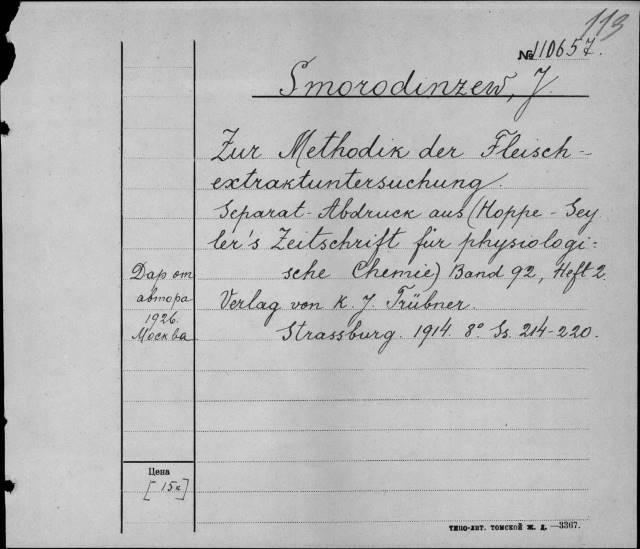 113
№ 110657.
Smorodinzew, J.
Zur Methodik der Fleisch-
extraktuntersuchung.
Separat-Abdruck aus (Hoppe-Sey
ler's Zeitschrift für physiologi-
sche Chemie) Band 92, Heft 2.
Verlag von K. J. Trübner.
Strassburg. 1914. 8° Ss. 214-220.
Дар от
автора
1926.
Москва
Цена
[15к]
ТИПО-ЛИТ. ТОМСКОЙ Ж. Д. —3367.